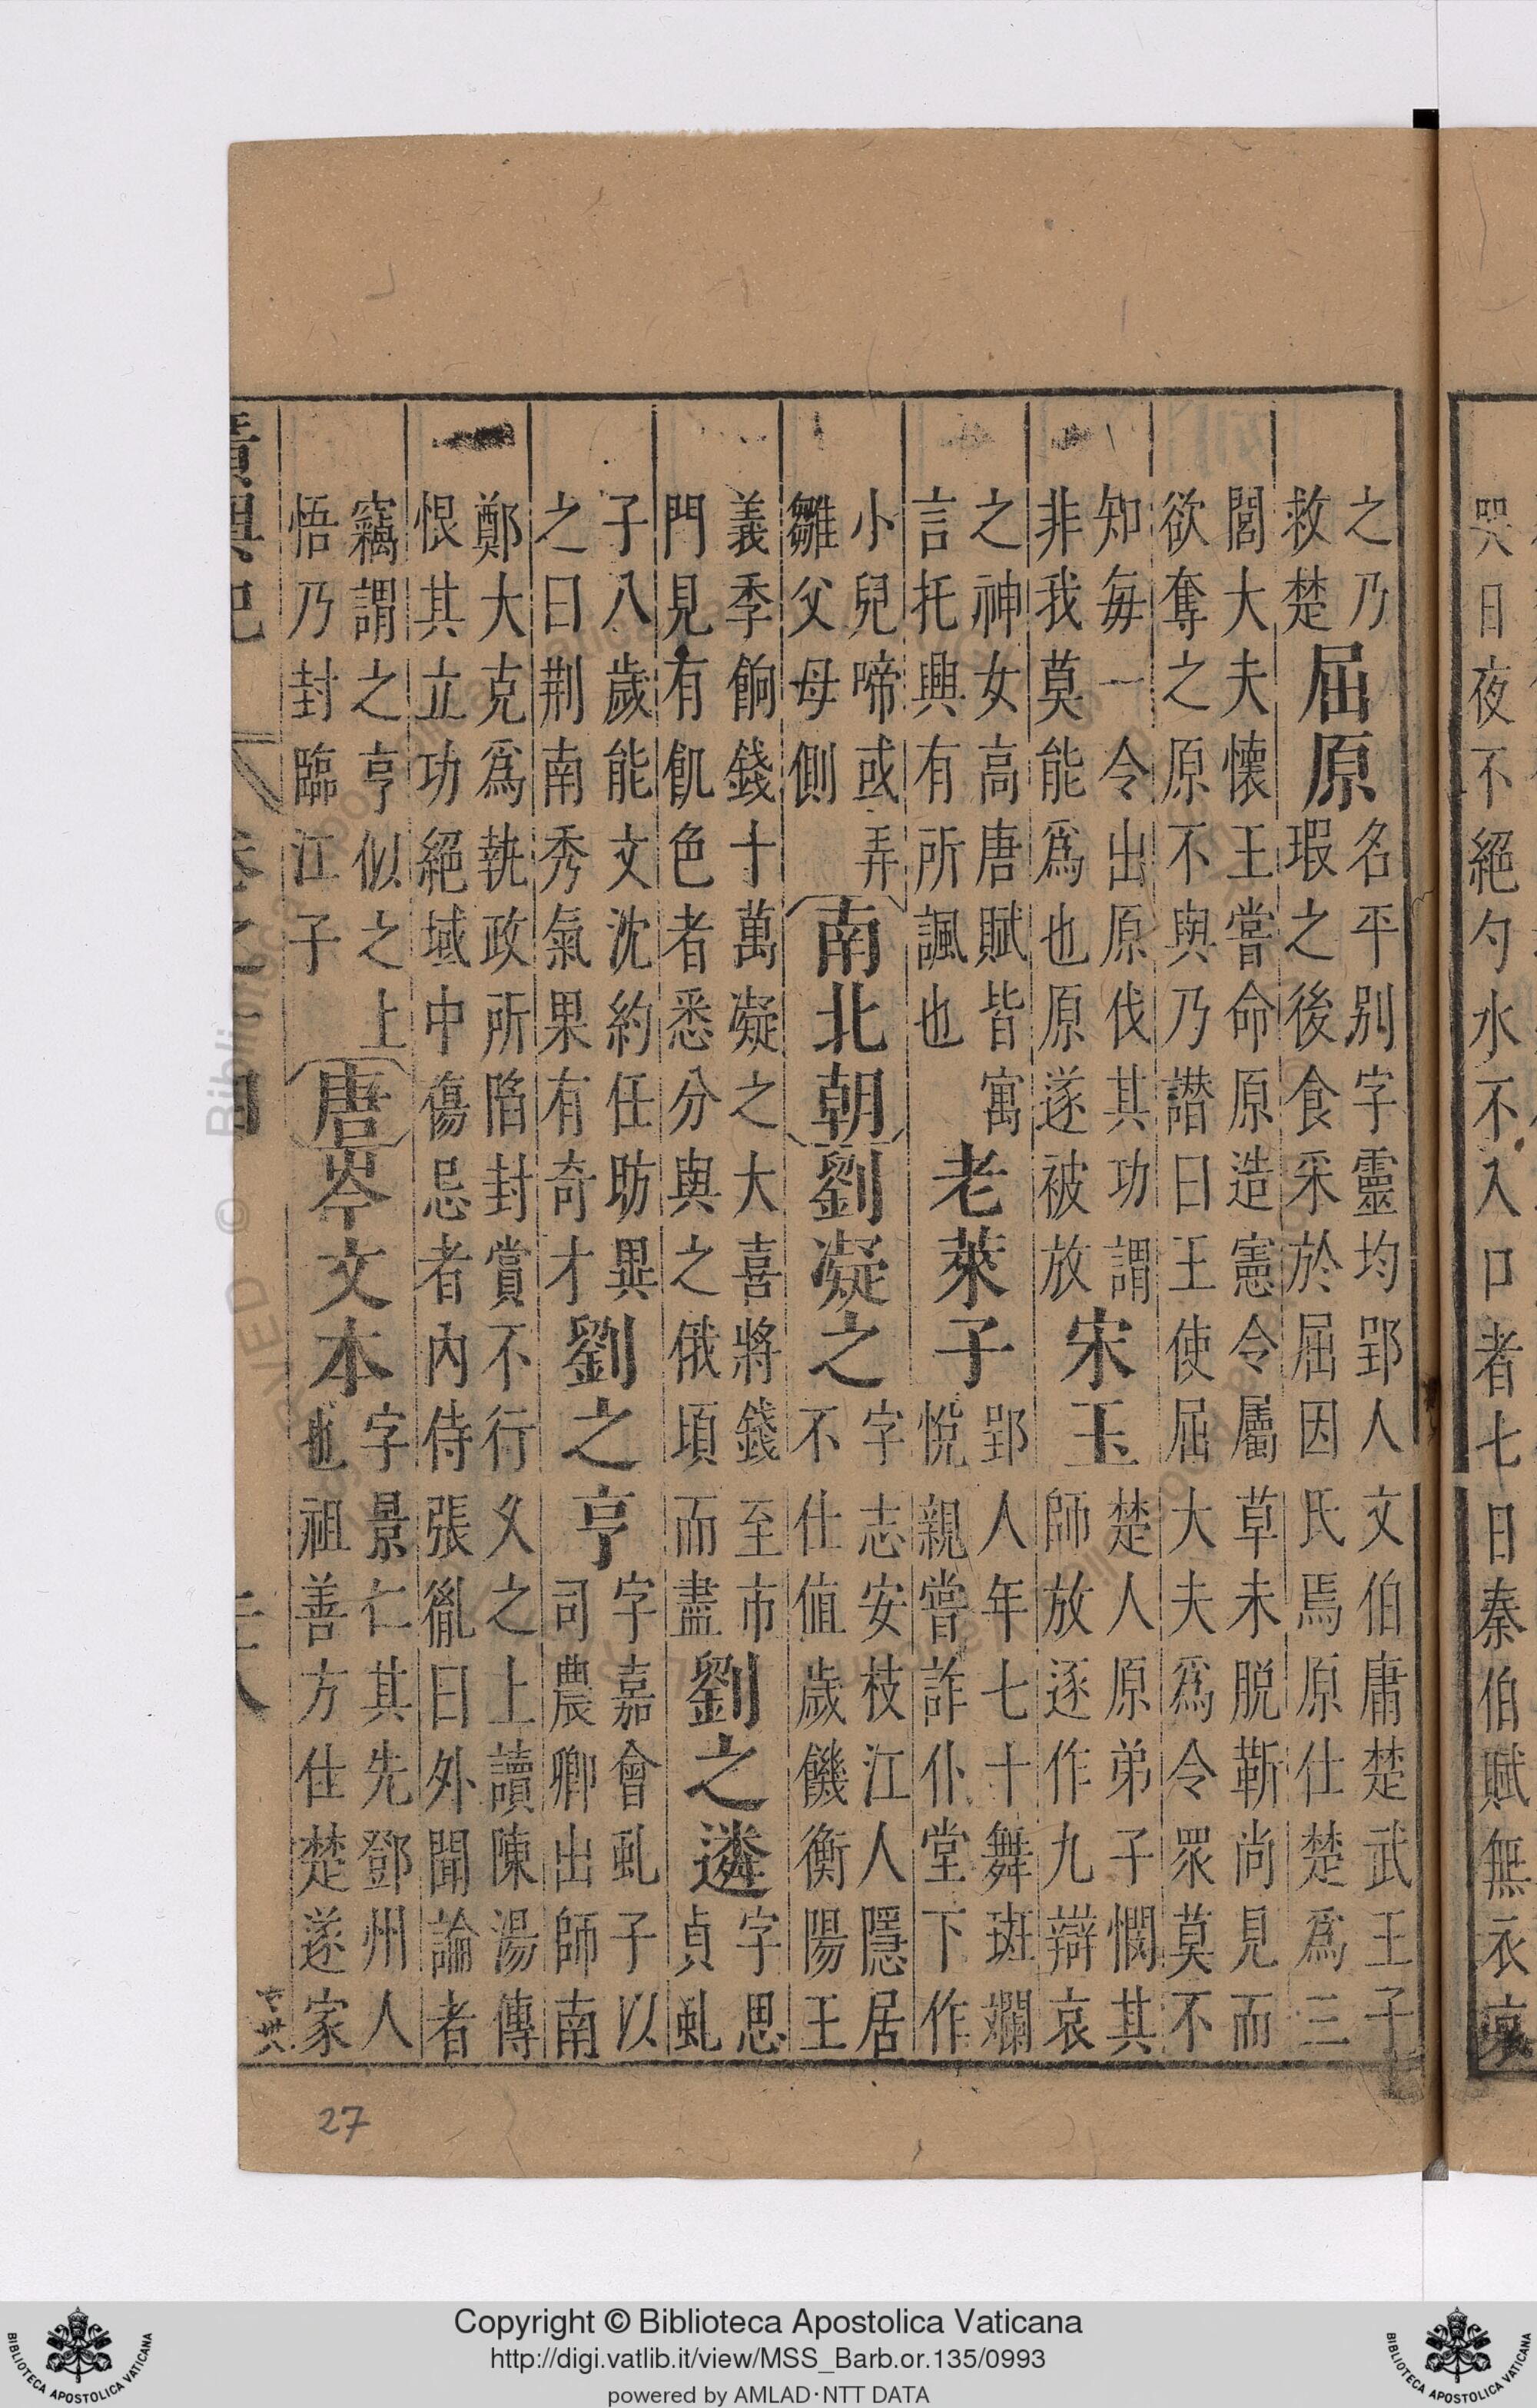 哭日夜不絕勺水不入口者七日秦伯賦無衣哀
之乃
救楚
屈原
名平别字靈均郢人文伯庸楚武王子
瑕之後食采於屈因氏焉原仕楚爲三
閭大夫懷王嘗命原造憲令屬草未脱靳尚見而
欲奪之原不與乃譖曰王使屈大夫爲令眾莫不
知每一令出原伐其功謂
非我莫能爲也原遂被放
宋玉
楚人原弟子憫其
師放逐作九辯哀
之神女高唐賦皆寓
言托興有所諷也
老萊子
郢人年七十舞班斕
悅親嘗詐仆堂下作
小兒啼或弄
雛父母側
南北朝
劉凝之
字志安枝江人隱居
不仕值歲饑衡陽王
義季餉錢十萬凝之大喜將錢至市
門見有飢色者悉分與之俄頃而盡
劉之遴
字思
貞虬
子八歲能文沈約任昉異
之曰荆南秀氣果有奇才
劉之亨
字嘉會虬子以
司農卿出師南
鄭大克爲執政所陷封賞不行乂之上讀陳湯傳
恨其立功絕域中傷忌者內侍張㣧曰外聞論者
竊謂之亨似之上
悟乃封臨江子
唐
岑文本
字景仁其先鄧州人
也祖善方仕楚遂家
廣輿記
卷之四
27
Copyright © Biblioteca Apostolica Vaticana
http://digi.vatlib.it/view/MSS_Barb.or.135/0993
powered by AMLAD·NTT DATA
BIBLIOTECA APOSTOLICA VATICANA
BIBLIOTECA APOSTOLICA VATICANA